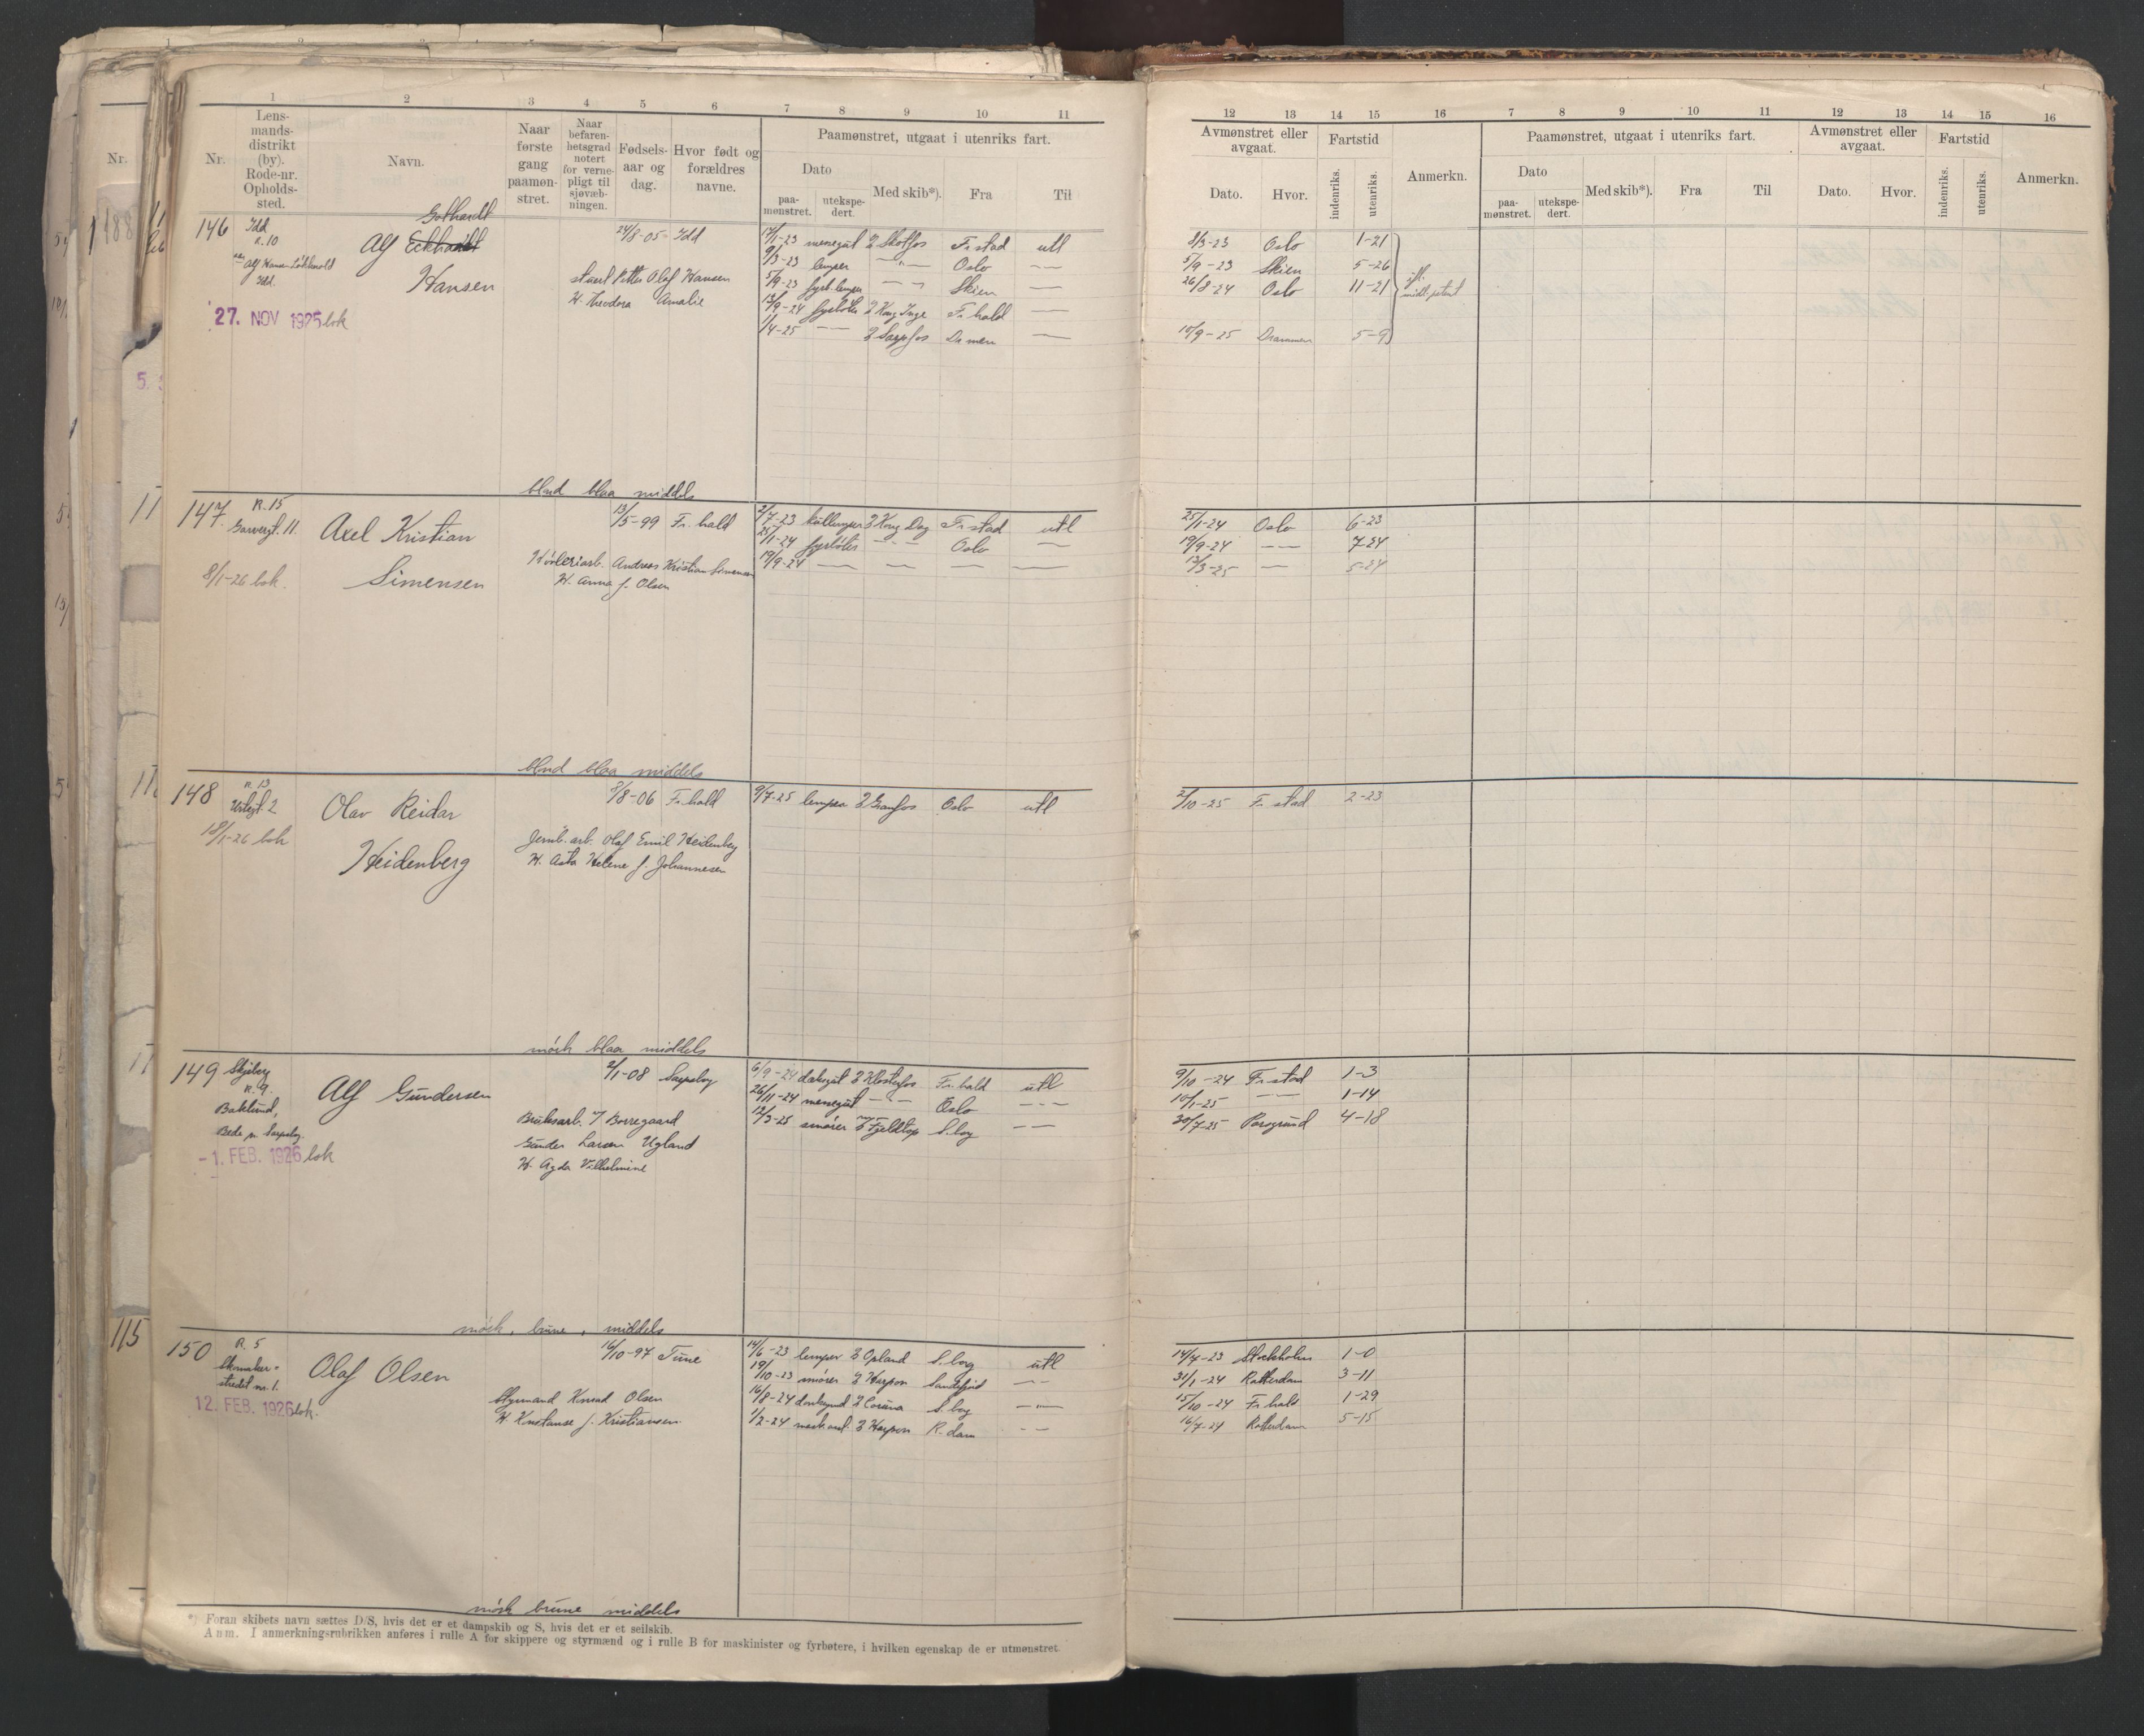 1 2 3 4 5 6 7 8 9 10 11
Nr.
Lens-mands-distrikt (by). Rode-nr. Opholds-sted.
Navn.
Naar første gang paamøn-stret.
Naar befaren-hetsgrad notert for verne-pligt til sjøvæb-ningen.
Fødsels-aar og dag.
Hvor født og forældres navne.
Paamønstret, utgaat i utenriks fart.
Dato
paa-mønstret.
utekspe-dert.
Med skib*).
Fra
Til
12 13 14 15 16 7 8 9 10 11 12 13 14 15 16
Avmønstret eller avgaat.
Dato.
Hvor.
Fartstid
indenriks.
utenriks.
Anmerkn.
Paamønstret, utgaat i utenriks fart.
Dato
paa-mønstret.
utekspe-dert.
Med skib*).
Fra
Til
Avmønstret eller avgaat.
Dato.
Hvor.
Fartstid
indenriks.
utenriks.
Anmerkn.
146 Idd R. 10
Gothardt
Alf Eckhardt
Hansen
27. NOV 1925 bok
24/8-05 Idd
Petter Olaf Hansen
H. Theodora Amalie
17/1-23 messegut Skotfos Fr.stad utl
9/3-23 lemper Oslo
5/9-23 fyrb.lemper Skien
13/9-24 fyrbøter Kong Inge Fr.hald
1/4-25 Sarpfos Dr.men
8/3-23 Oslo 1-21
5/9-23 Skien 5-26
26/8-24 Oslo 11-21
10/9-25 Drammen 5-9
blnd blaa middels
147 R. 15
Garvergt. 11.
Axel Kristian
Simensen
8/1-26 bok.
13/5-99 Fr.hald
Andreas Kristian Simensen
H. Anna f. Olsen
2/7-23 kullemper Kong Dag Fr.stad utl
25/1-24 fyrbøter Oslo
19/9-24
25/1-24 Oslo 6-23
19/9-24 7-24
13/3-25 5-24
blnd blaa middels
148 R. 13
Olav Reidar
Heidenberg
18/1-26 bok
7/8-06 Fr.hald
Jernb.arb. Olaf Emil Heidenberg
H. Asta Helene f. Johannesen
9/7-25 lemper Granfos Oslo utl
2/10-25 Fr.stad 2-23
mørk blaa middels
149 Skjeberg
R. 9.
Baklund,
Alf Gundersen
-1. FEB. 1926 bok
2/1-08 Sarpsborg
Bruksarb. v/ Borregaard
Gunder Larsen Ugland
H. Agda Vilhelmine
6/9-24 dæksgut Klosterfos Fr.hald utl
26/11-24 messegut Oslo
12/3-25 smører Fjeldtop S.borg
9/10-24 Fr.stad 1-3
10/1-25 1-14
30/7-25 Porsgrund 4-18
mørk, brune, middels
150 R. 5
Skomaker-
stredet nr. 1.
Olaf Olsen
12. FEB. 1926 bok.
16/10-97 Tune
Styrmand Konrad Olsen
H. Konstanse f. Kristiansen
14/6-23 lemper Opland S.borg utl
19/10-23 smører Harpon Sandefjord
16/8-24 donkeymd Coruna S.borg
1/2-24 Harpon R.dam
14/7-23 Stockholm 1-0
31/1-24 Rotterdam 3-11
15/10-24 Fr.hald 1-29
16/7-24 Rotterdam 5-15
mørk brune middels
*) Foran skibets navn sættes D/S, hvis det er et dampskib og S, hvis det er et seilskib.
Anm. I anmerkningsrubrikken anføres i rulle A for skippere og styrmænd og i rulle B for maskinister og fyrbøtere, i hvilken egenskap de er utmønstret.
115